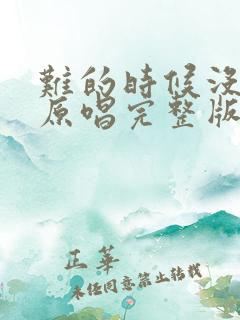 難的時候沒
原唱完整版
正華
未经同意禁止转载